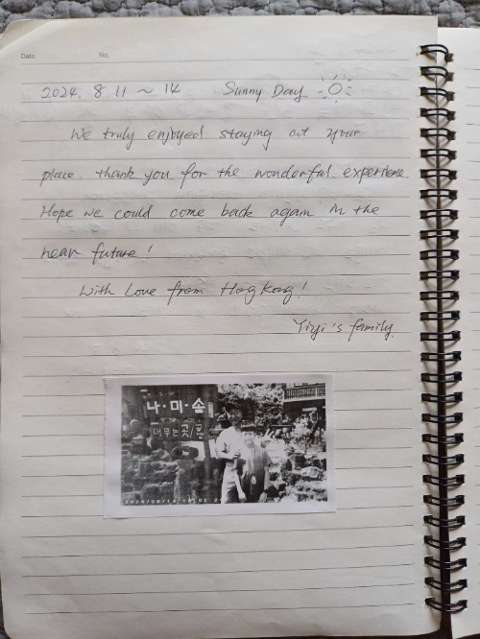 Date.
No.
2024. 8. 11 ~ 14 Sunny Day
We truly enjoyed staying at your
place. thank you for the wonderful experience.
Hope we could come back again in the
near future!
With Love from Hong Kong!
Yiyi's family.
나·미·송
머무는곳/쉼